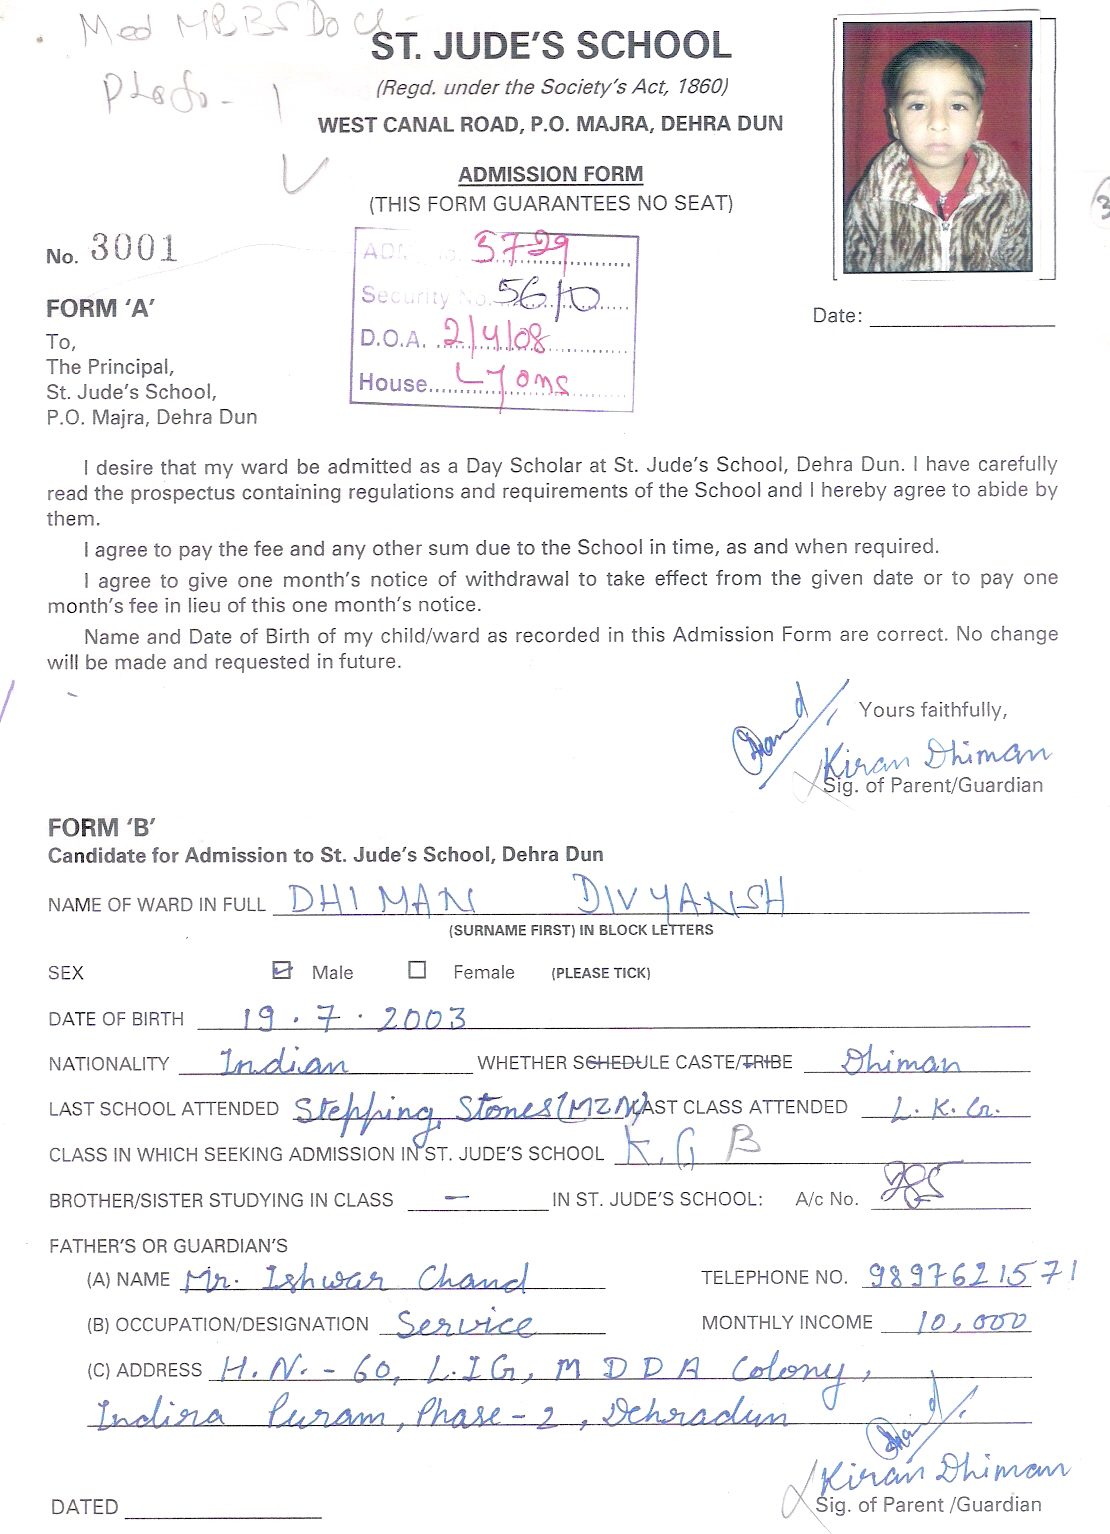 Med MBBS Docs -
Photo - 1
ST. JUDE'S SCHOOL
(Regd. under the Society's Act, 1860)
WEST CANAL ROAD, P.O. MAJRA, DEHRA DUN
ADMISSION FORM
(THIS FORM GUARANTEES NO SEAT)
No. 3001
ADM. No. 5729
Security No. 56/0
D.O.A. 2/4/08
House Lyons
Date:
FORM 'A'
To,
The Principal,
St. Jude's School,
P.O. Majra, Dehra Dun
I desire that my ward be admitted as a Day Scholar at St. Jude's School, Dehra Dun. I have carefully
read the prospectus containing regulations and requirements of the School and I hereby agree to abide by
them.
I agree to pay the fee and any other sum due to the School in time, as and when required.
I agree to give one month's notice of withdrawal to take effect from the given date or to pay one
month's fee in lieu of this one month's notice.
Name and Date of Birth of my child/ward as recorded in this Admission Form are correct. No change
will be made and requested in future.
Yours faithfully,
Kiran Dhiman
Sig. of Parent/Guardian
FORM 'B'
Candidate for Admission to St. Jude's School, Dehra Dun
NAME OF WARD IN FULL DHIMAN DIVYANSH
(SURNAME FIRST) IN BLOCK LETTERS
SEX Male Female (PLEASE TICK)
DATE OF BIRTH 19.7.2003
NATIONALITY Indian WHETHER SCHEDULE CASTE/TRIBE Dhiman
LAST SCHOOL ATTENDED Stepping Stones (MZN) LAST CLASS ATTENDED L.K.G.
CLASS IN WHICH SEEKING ADMISSION IN ST. JUDE'S SCHOOL K.G B
BROTHER/SISTER STUDYING IN CLASS — IN ST. JUDE'S SCHOOL: A/c No.
FATHER'S OR GUARDIAN'S
(A) NAME Mr. Ishwar Chand TELEPHONE NO. 9897621571
(B) OCCUPATION/DESIGNATION Service MONTHLY INCOME 10,000
(C) ADDRESS H.N.-60, L.I.G, M D D A Colony,
Indira Puram, Phase-2, Dehradun
Kiran Dhiman
DATED Sig. of Parent /Guardian